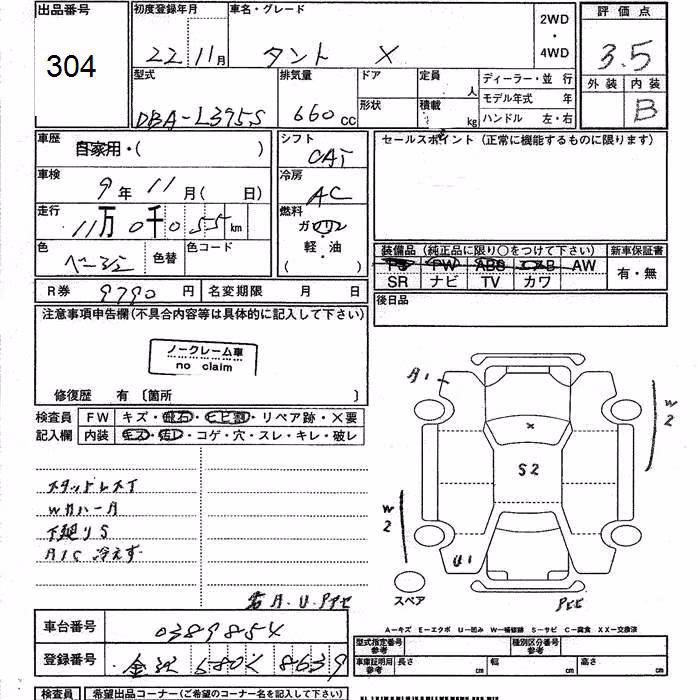 出品番号 初度登録年月 車名・グレード 2WD ・ 4WD 評価点
304 22 11月 タント X 3.5
型式 排気量 ドア 定員 人 ディーラー・並 行 外装 内装
形状 積載 kg モデル年式 年
DBA-L375S 660cc ハンドル 左・右 B
車歴 自家用・( ) シフト CAT セールスポイント(正常に機能するものに限ります)
車検 9年 11月( 日) 冷房 AC
走行 11万 0千 0 55 km 燃料 ガソリン
軽・油
( )
色 ベージュ 色替 色コード 装備品(純正品に限り○をつけて下さい) 新車保証書
PS PW ABS エアB AW 有・無
SR ナビ TV カワ
R券 9790円 名変期限 月 日 後日品
注意事項申告欄(不具合内容等は具体的に記入して下さい)
ノークレーム車
no claim
修復歴 有 〔箇所 〕
検査員 FW キズ・飛石・ヒビ割・リペア跡・×要
記入欄 内装 キズ・汚レ・コゲ・穴・スレ・キレ・破レ
A1
W2
×
S2
W2
U1
スタッドレスT
Wカバー月
下廻りS
A/C 冷えず
A・U・
スペア
A-キズ E-エクボ U-凹み W-補修跡 S-サビ C-腐食 XX-交換済
車台番号 0389854
登録番号 金沢 580 く 8639
型式指定番号 参考 種別区分番号 参考
車庫証明用 参考 長さ cm 幅 cm 高さ cm
検査員 希望出品コーナー(ご希望のコーナー名を記入下さい)